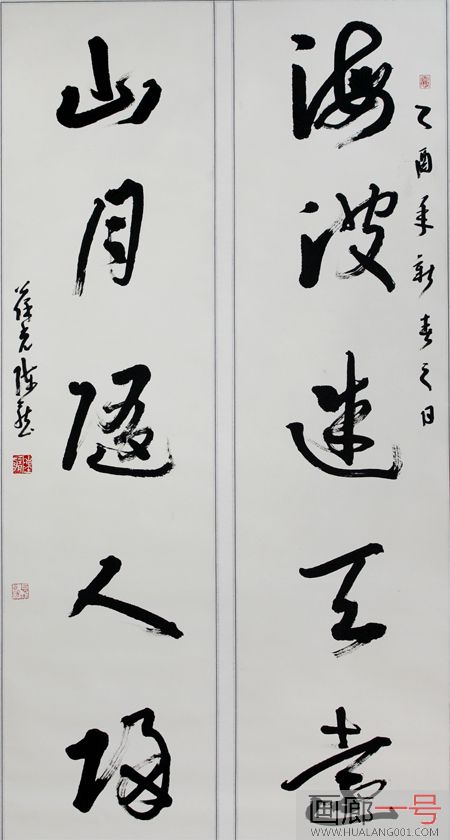 海波連天
乙酉年新春之日
山月隨人歸
画廊一号
WWW.HUALANG001.COM